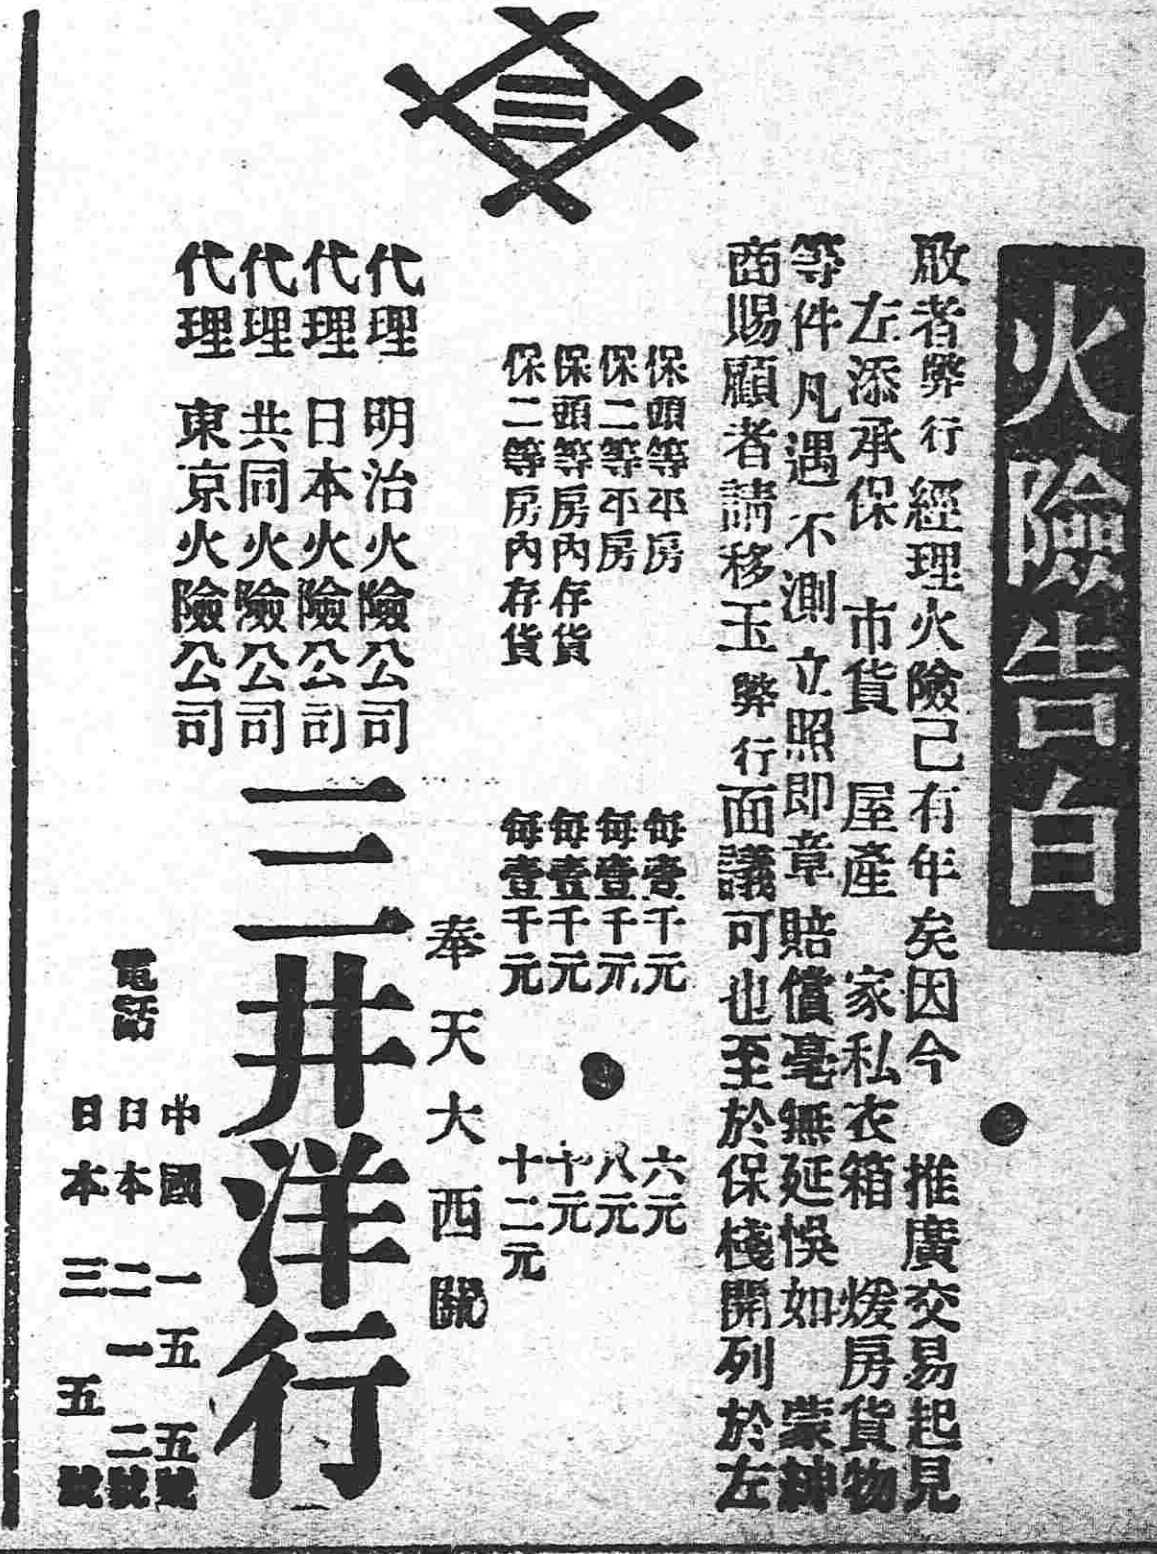 火險告白
啟者弊行經理火險己有年矣因今 推廣交易起見
左添承保 市貨 屋產 家私衣箱 煖房貨物
等件凡遇不測立照即章賠償毫無延悞如 蒙紳
商賜顧者請移玉弊行面議可也至於保棧開列於左
保頭等平房 每壹千元 六元
保二等平房 每壹千元 八元
保頭等房內存貨 每壹千元 十元
保二等房內存貨 每壹千元 十二元
奉天大西關
代理 明治火險公司
代理 日本火險公司
代理 共同火險公司
代理 東京火險公司
三井洋行
電話
中國 一五五號
日本 二一二號
日本 三五號